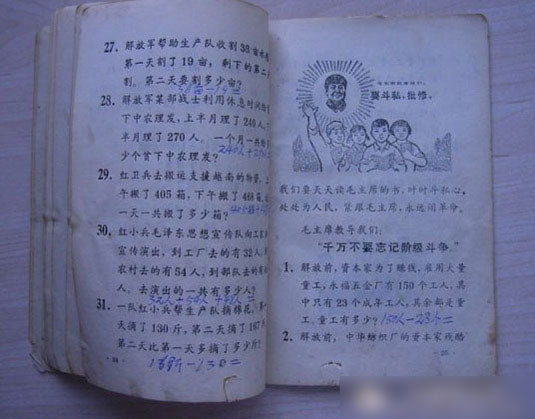 27. 解放军帮助生产队收割38亩水
第一天割了19亩,剩下的第二天
割。第二天要割多少亩?
28. 解放军某部战士利用休息时间给
下中农理发,上半月理了240人,
半月理了270人。一个月一共给
少个贫下中农理发?
240人+2
29. 红卫兵去搬运支援越南的物资。上
午搬了405箱,下午搬了468箱,
一天一共搬了多少箱?
30. 红小兵毛泽东思想宣传队向工农
宣传演出,到工厂去的有32人,
农村去的有54人,到部队去的有
人。去演出的一共有多少人?
32人+54人+
31. 一队红小兵帮生产队摘棉花。第一
天摘了130斤,第二天摘了167
第二天比第一天多摘了多少斤?
-130=
24
要斗私,批修。
我们要天天读毛主席的书,时时斗私心,
处处为人民,紧跟毛主席,永远闹革命。
毛主席教导我们:
“千万不要忘记阶级斗争。”
1. 解放前,资本家为了赚钱,雇用大量
童工,永福五金厂有150个工人,其
中只有23个成年工人,其余都是童
工。童工有多少?150人-23=
2. 解放前,中华纺织厂的资本家残酷
25